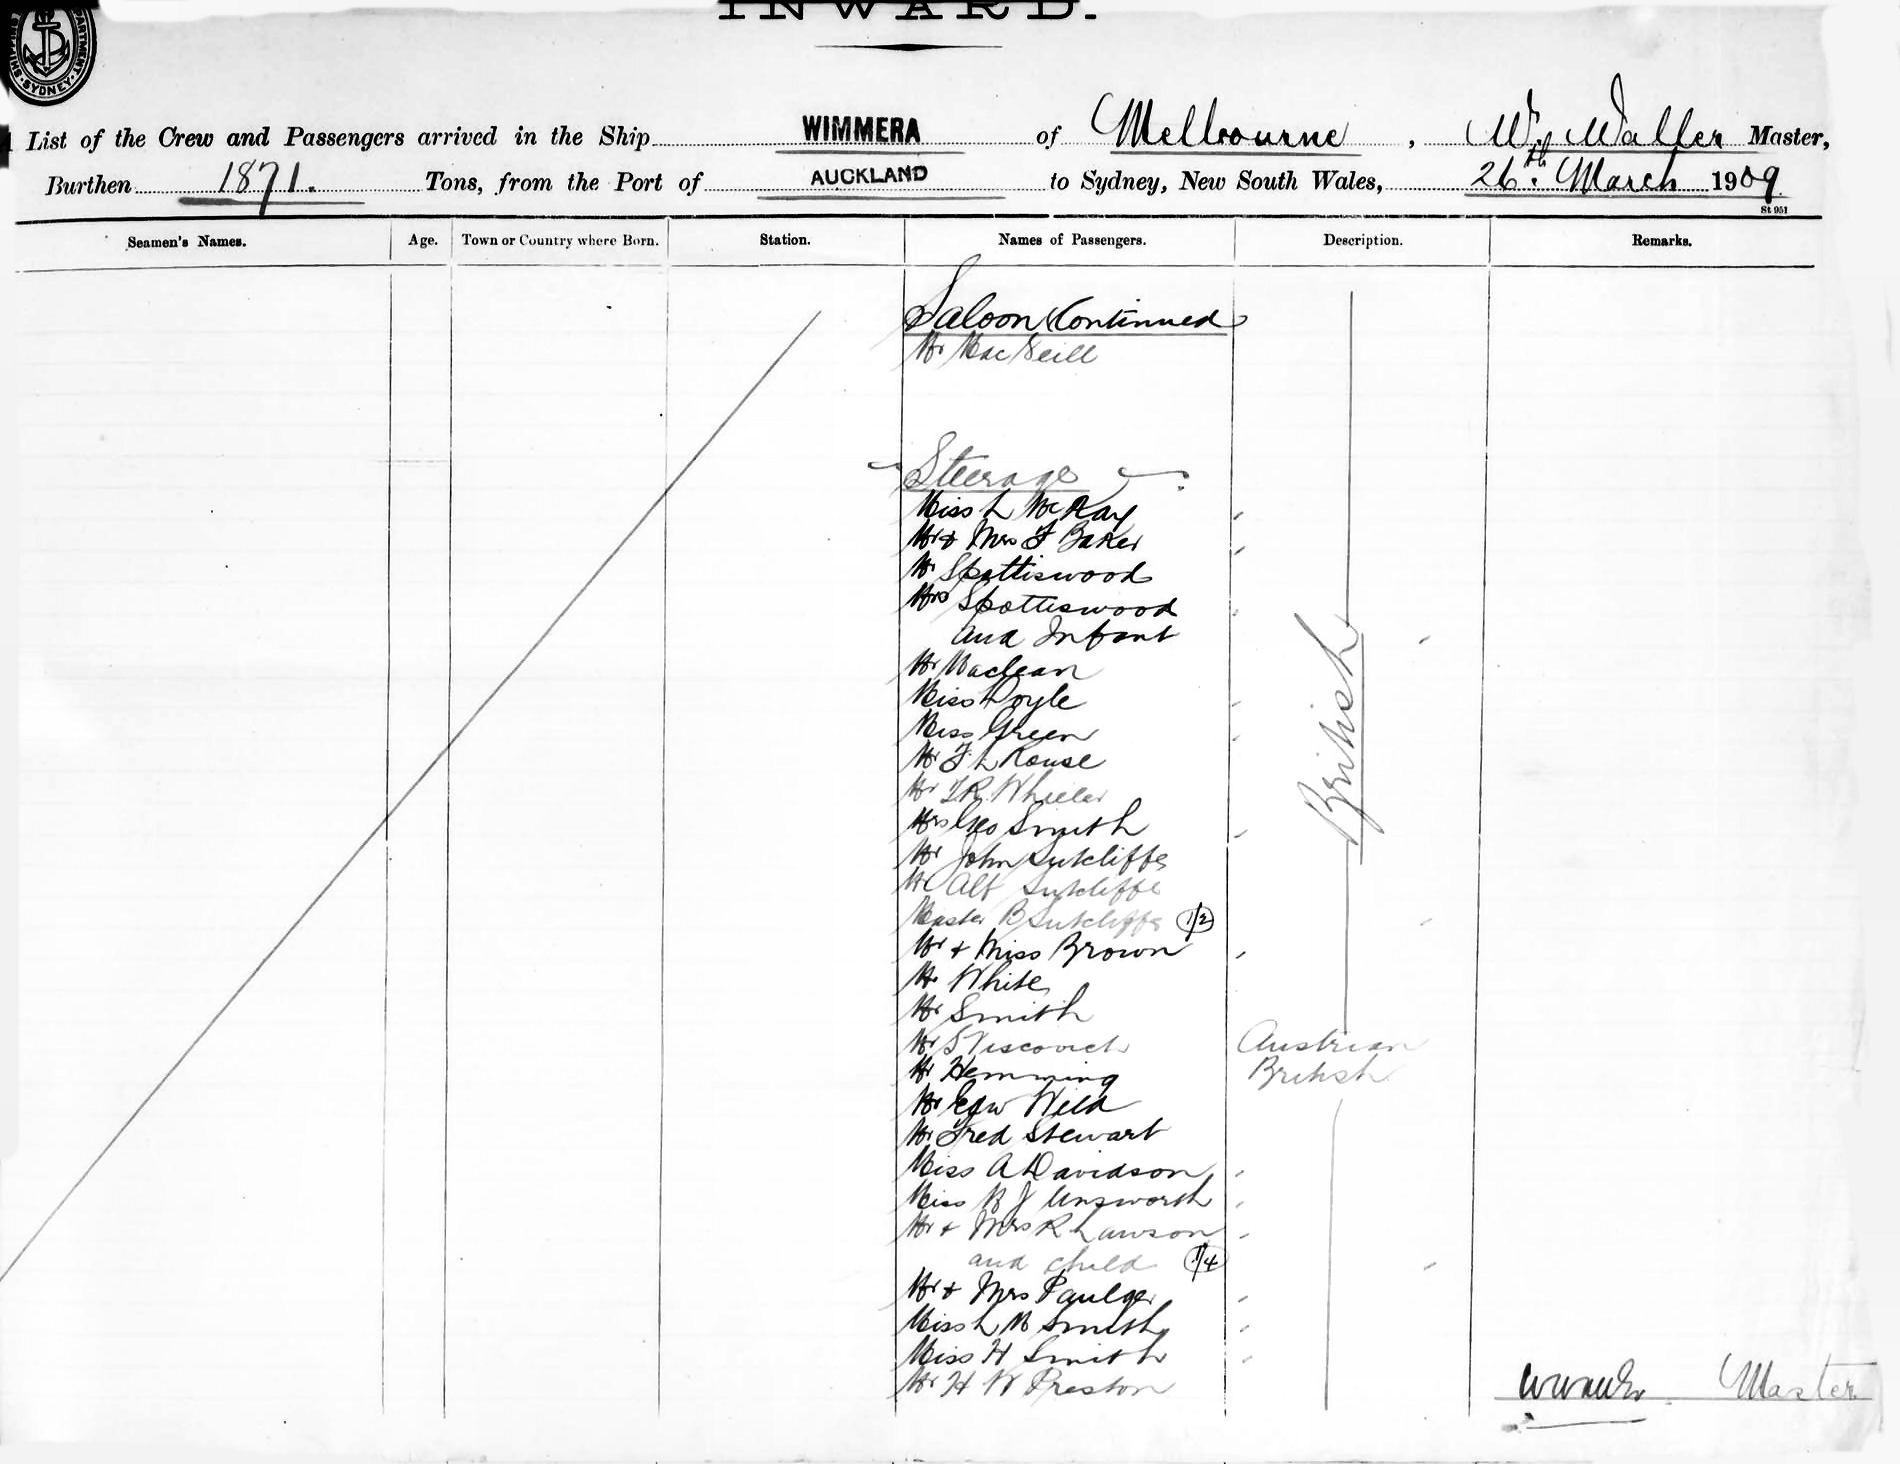 INWARD.
SYDNEY
List of the Crew and Passengers arrived in the Ship WIMMERA of Melbourne, Wm Waller Master,
Burthen 1871. Tons, from the Port of AUCKLAND to Sydney, New South Wales, 26th March 1909
St 951
Seamen's Names. Age. Town or Country where Born. Station. Names of Passengers. Description. Remarks.
Saloon Continued
Mr MacNeill
Steerage
Miss L McKay
Mr & Mrs F Baker
Mr Spottiswood
Mrs Spottiswood
and Infant
Mr Maclean
Miss Doyle
Miss Green
Mr F L Rouse
Mr Wheeler
Mrs Geo Smith
Mr John Sutcliffe
Mr Alf Sutcliffe
Master B Sutcliffe 1/2
Mr & Miss Brown
Mr White
Mr Smith
British
Mr S Viscovich Austrian
Mr Hemming British
Mr Edw Wild
Mr Fred Stewart
Miss A Davidson
Miss B J Unsworth
Mr & Mrs R Lawson
and child 1/4
Mr & Mrs Paulger
Miss L M Smith
Miss H Smith
Mr H W Preston
Master